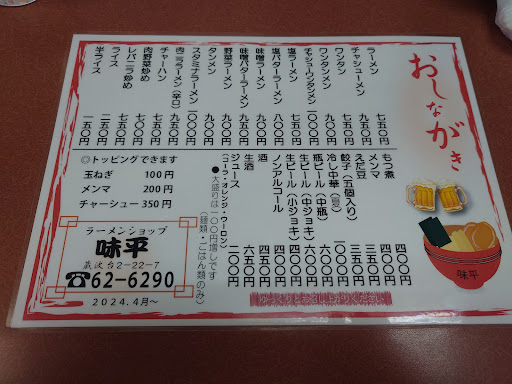 おしながき
ラーメン 七五〇円
チャシューメン
ワンタン
ワンタンメン 九〇〇円
チャシューワンタンメン
塩ラーメン 七五〇円
塩バターラーメン 八〇〇円
味噌ラーメン
味噌バターラーメン 九〇〇円
野菜ラーメン 九〇〇円
タンメン 九〇〇円
スタミナラーメン 一〇〇〇円
肉ニララーメン(辛口) 九五〇円
チャーハン 七五〇円
肉野菜炒め 七五〇円
レバニラ炒め 七五〇円
ライス 二五〇円
半ライス 一五〇円
もつ煮 四〇〇円
メンマ 四〇〇円
えだ豆
餃子(五個入り)
冷し中華(夏) 一〇〇〇円
瓶ビール(中瓶) 六〇〇円
生ビール(中ジョキ) 六五〇円
生ビール(小ジョキ)
ノンアルコール 四五〇円
酒 四五〇円
生酒 六五〇円
ジュース
(コーラ・オレンジ・ウーロン)
●大盛りは一〇〇円増しです
(麺類・ごはん類のみ)
◎トッピングできます
玉ねぎ 100円
メンマ 200円
チャーシュー 350円
ラーメンショップ
味平
蔵波台2-22-7
☎62-6290
2024.4月～
味平